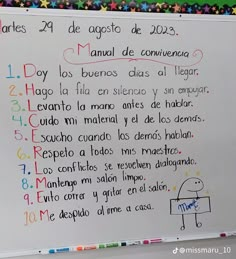 artes 29 de agosto de 2023.
Manual de convivencia
1. Doy los buenos dias al llegar.
2. Hago la fila en silencio y sin empujar.
3. Levanto la mano antes de hablar.
4. Cuido mi material y el de los demás.
5. Escucho cuando los demás hablan.
6. Respeto a todos mis maestros.
7. Los conflictos se resuelven dialogando.
8. Mantengo mi salón limpio.
9. Evito correr y gritar en el salón.
10. Me despido al irme a casa.
@missmaru_10